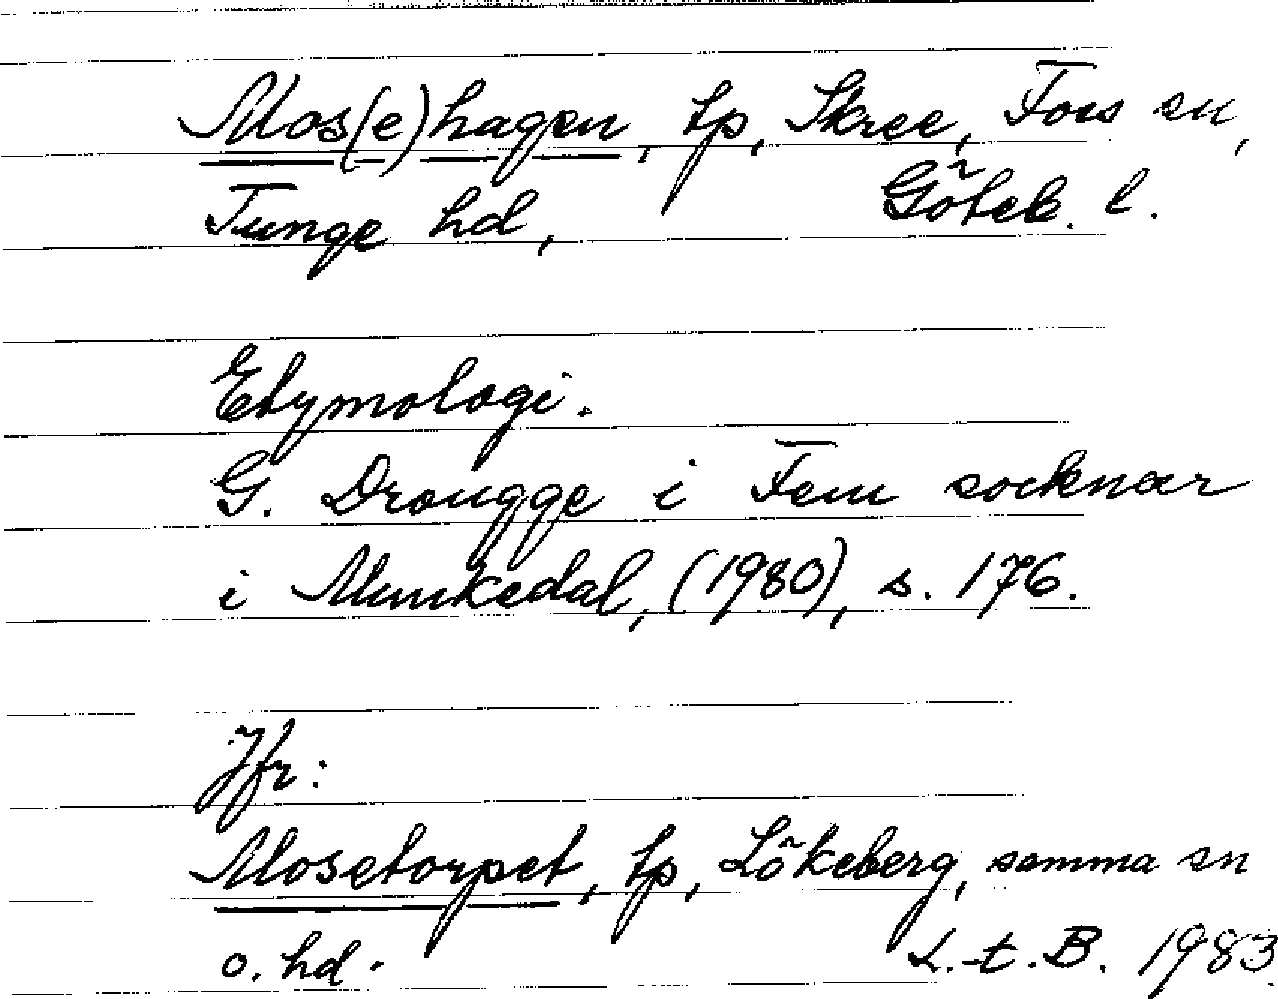 Mos(e)hagen, tp, Skree, Foss sn,
Tunge hd, Göteb. l.
Etymologi.
G. Drougge i Fem socknar
i Munkedal, (1980), s. 176.
Jfr:
Mosetorpet, tp, Lökeberg, samma sn
o. hd. L.t.B. 1983.